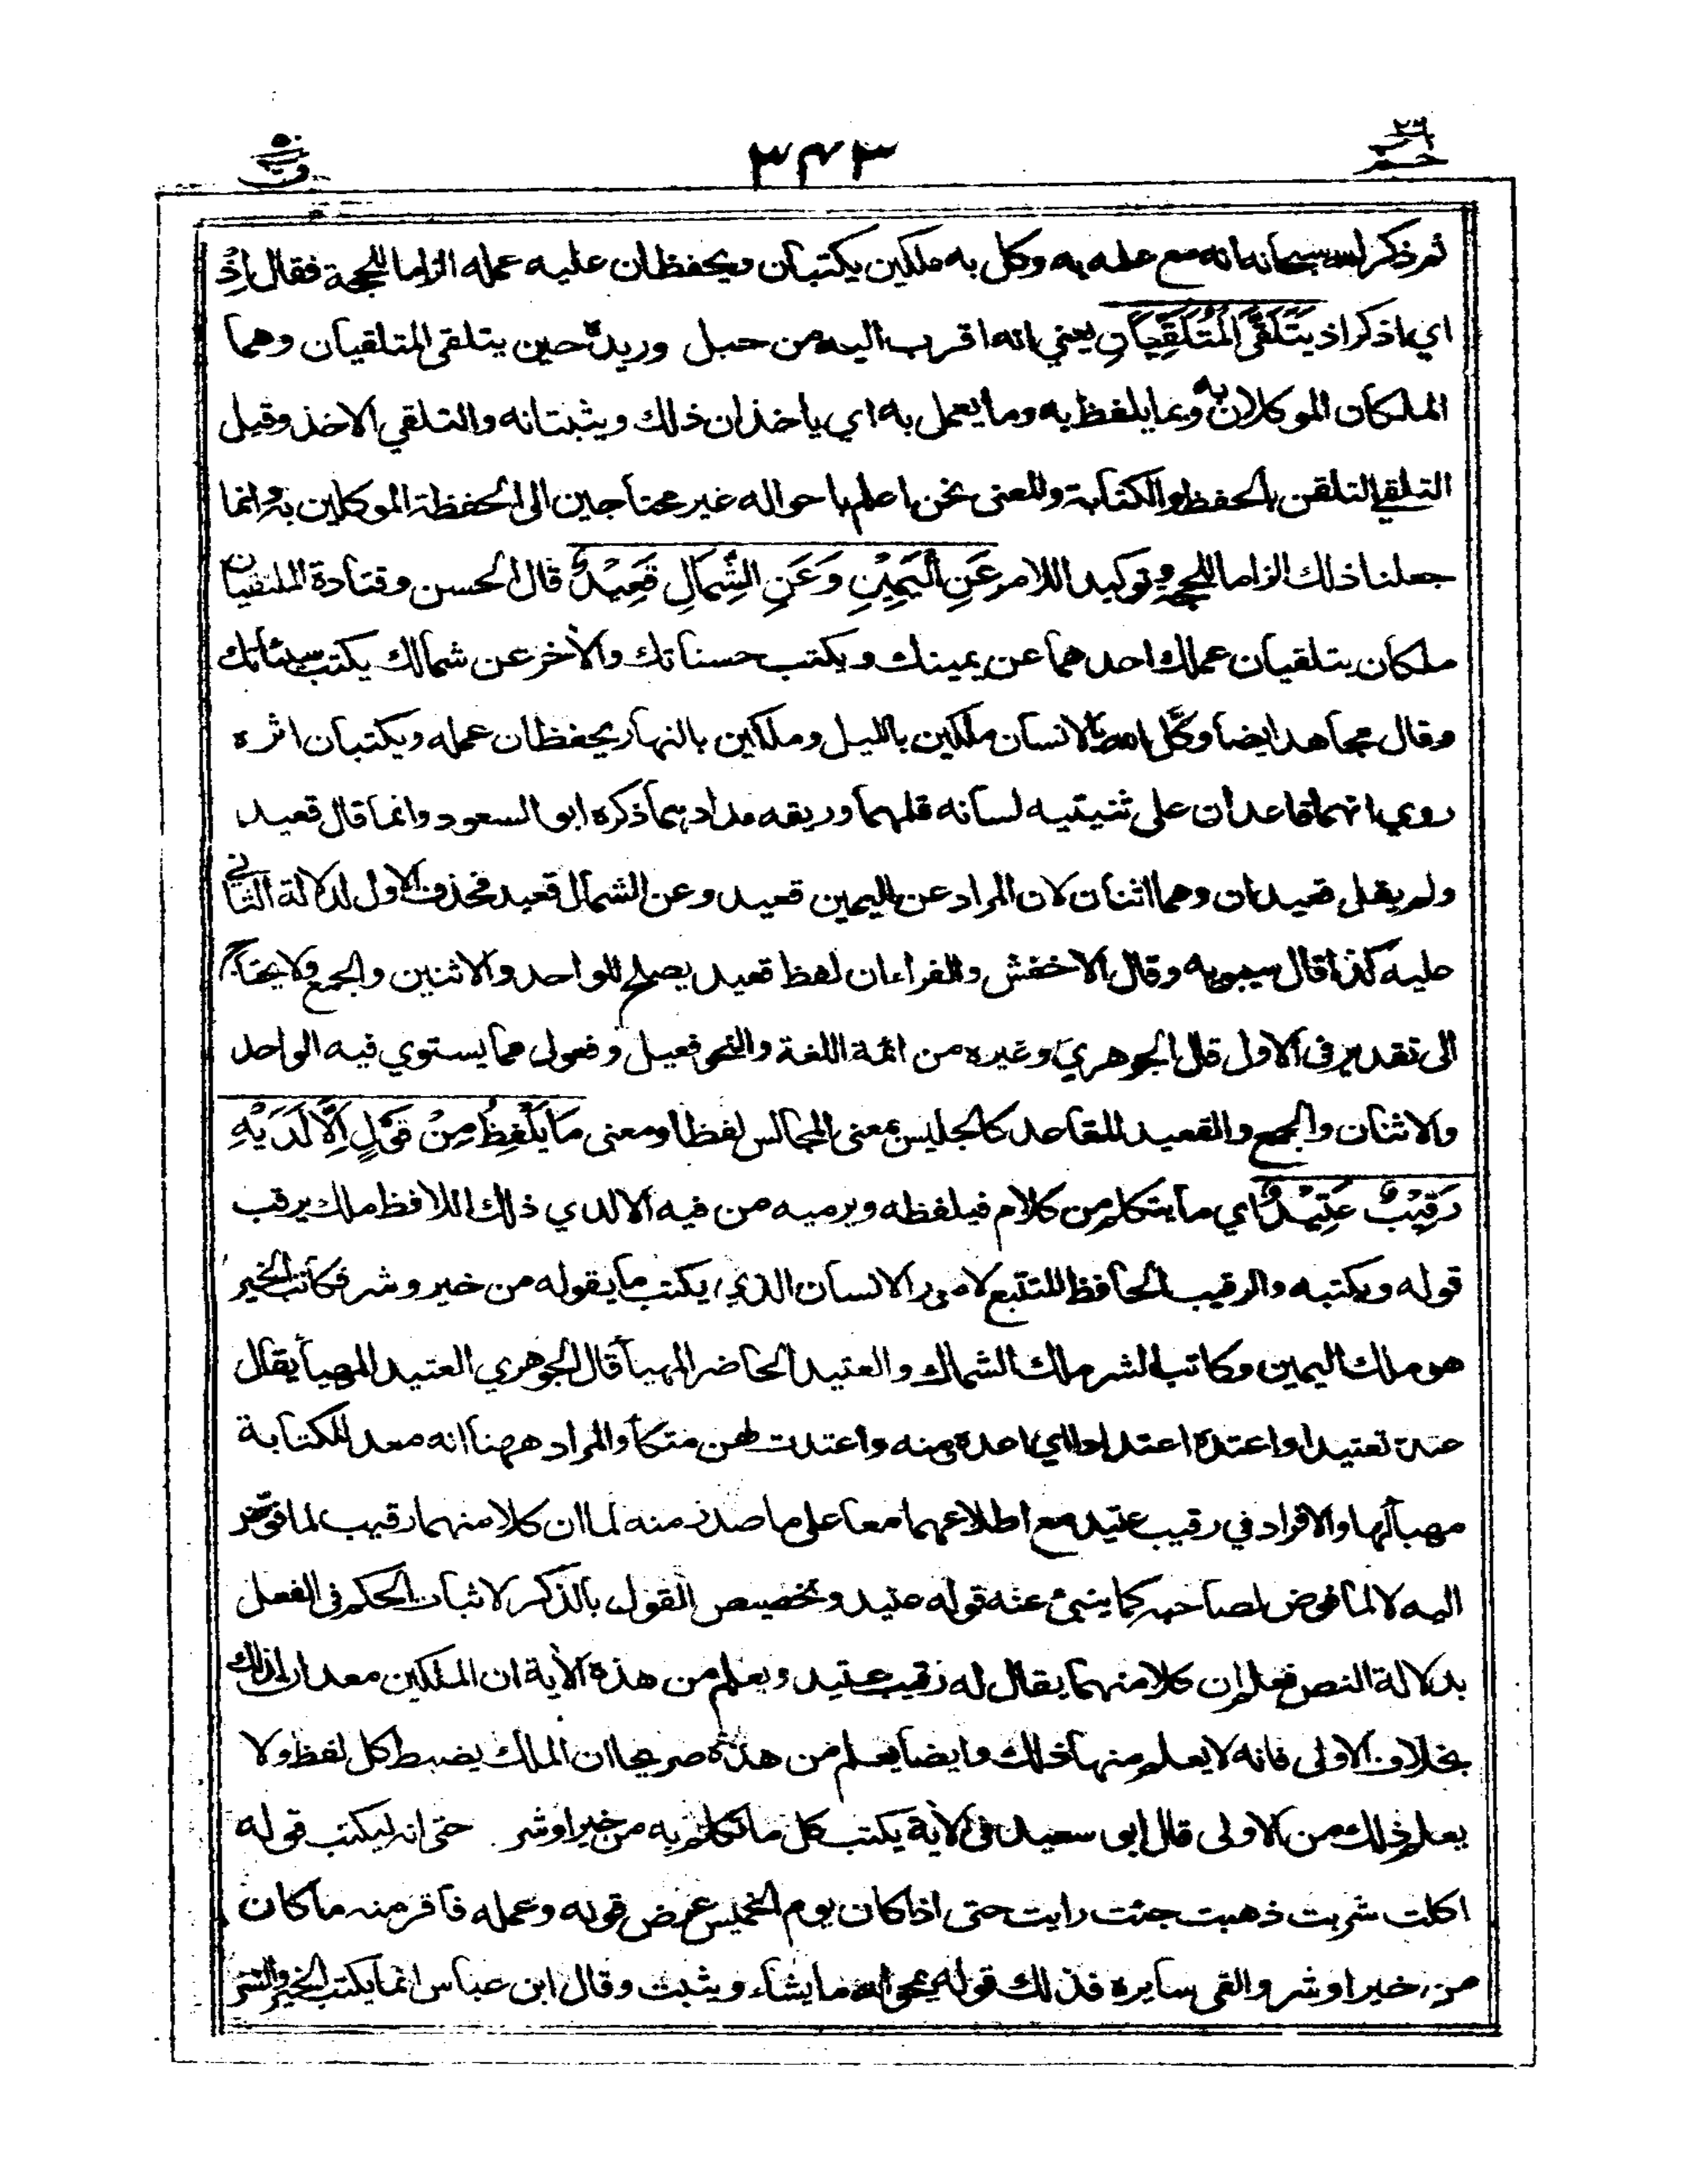 حم ٢٦
٣٤٣
ق ٥٠
ثم ذكر الله سبحانه انه مع علمه به وكل به ملكين يكتبان ويحفظان عليه عمله الزاما للحجة فقال اِذْ
اي اذكر اذ يَتَلَقَّى الْمُتَلَقِّيَانِ يعني انه اقرب اليه من حبل وريده حين يتلقى المتلقيان وهما
الملكان الموكلان به وعما يلفظ به وما يعمل به اي ياخذان ذلك ويثبتانه والتلقي الاخذ وقيل
التلقي التلقن بالحفظ والكتابة والمعنى نحن اعلم باحواله غير محتاجين الى الحفظة الموكلين به وانما
جعلنا ذلك الزاما للحجة وتوكيد اللامر عَنِ الْيَمِيْنِ وَعَنِ الشِّمَالِ قَعِيْدٌ قال الحسن وقتادة المتلقيان
ملكان يتلقيان عملك احدهما عن يمينك ويكتب حسناتك والأخر عن شمالك يكتب سيئاتك
وقال مجاهد ايضا وكَّل الله بالانسان ملكين بالليل وملكين بالنهار يحفظان عمله ويكتبان اثره
روي انهما قاعدان على ثنيتيه لسانه قلمهما وريقه مدادهما ذكره ابو السعود وانما قال قعيد
ولم يقل قعيدان وهما اثنان لان المراد عن اليمين قعيد وعن الشمال قعيد فحذف الاول لدلالة الثاني
عليه كذا قال سيبويه وقال الاخفش والفراء ان لفظ قعيد يصلح للواحد والاثنين والجمع ولا يحتاج
الى تقدير في الاول قال الجوهري وغيره من ائمة اللغة والنحو فعيل وفعول مما يستوي فيه الواحد
والاثنان والجمع والقعيد للقاعد كالجليس بمعنى المجالس لفظا ومعنى مَا يَلْفِظُ مِنْ قَوْلٍ اِلَّا لَدَيْهِ
رَقِيْبٌ عَتِيْدٌ اي ما يتكلم من كلام فيلفظه ويرميه من فيه الا لدي ذلك اللافظ ملك يرقب
قوله ويكتبه والرقيب الحافظ المتتبع لامور الانسان الذي يكتب ما يقوله من خير وشر فكاتب الخير
هو ملك اليمين وكاتب الشر ملك الشمال والعتيد الحاضر المهيأ قال الجوهري العتيد المهيأ يقال
عتده تعتيدا واعتده اعتدادا اي اعده ومنه واعتدت لهن متكأ والمراد ههنا انه معد للكتابة
مهيأ لها والافراد في رقيب عتيد مع اطلاعهما معا على ما صدر منه لما ان كلا منهما رقيب لما فوّض
اليه لا لما فوض لصاحبه كما ينبئ عنه قوله عتيد وتخصيص القول بالذكر لاثبات الحكم في الفعل
بدلالة النص فعلم ان كلا منهما يقال له رقيب عتيد ويعلم من هذه الأية ان الملكين معدان لذلك
بخلاف الاولى فانه لا يعلم منها ذلك وايضا يعلم من هذه صريحا ان الملك يضبط كل لفظ ولا
يعلم ذلك من الاولى قال ابو سعيد في الأية يكتب كل ما تكلم به من خير او شر حتى انه ليكتب قوله
اكلت شربت ذهبت جئت رايت حتى اذا كان يوم الخميس عرض قوله وعمله فاقر منه ما كان
من خير او شر والقى سايره فذلك قوله يمحو الله ما يشاء ويثبت وقال ابن عباس انما يكتب الخير والشر